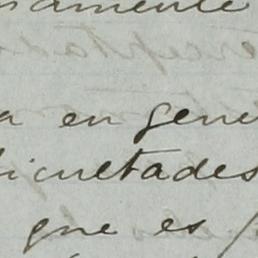 namente
a en gene
ficultades
que es